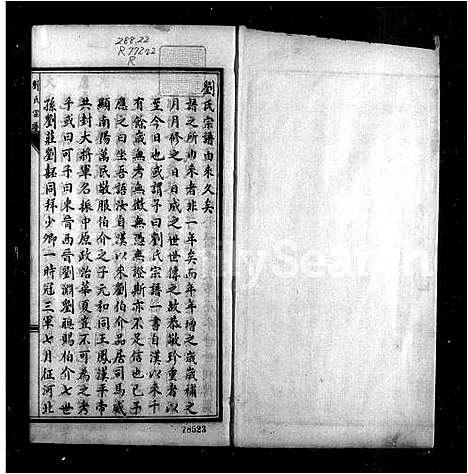 288.22
R7722
R
劉氏宗譜由來久矣
譜之所由來者非一年矣而年年增之歲歲補之
月月修之日日成之世世傳之故恭敬珍重者以
至今日也或謂予曰劉氏宗譜一書自漢以來千
有餘歲無考無徵無憑無證斯亦不足信也已予
應之曰坐吾語汝自漢以來劉伯介品居司馬威
顯南陽萬民敬服伯介之子元和同王鳳漢平帝
共封大將軍名振中原政治華夏豈不可為之考
乎或曰可乎曰東晉西晉劉淵劉聰賜伯介七世
孫劉莊劉韶同拜少卿一時冠三軍七月征河北
劉氏宗譜
78523
FamilySearch